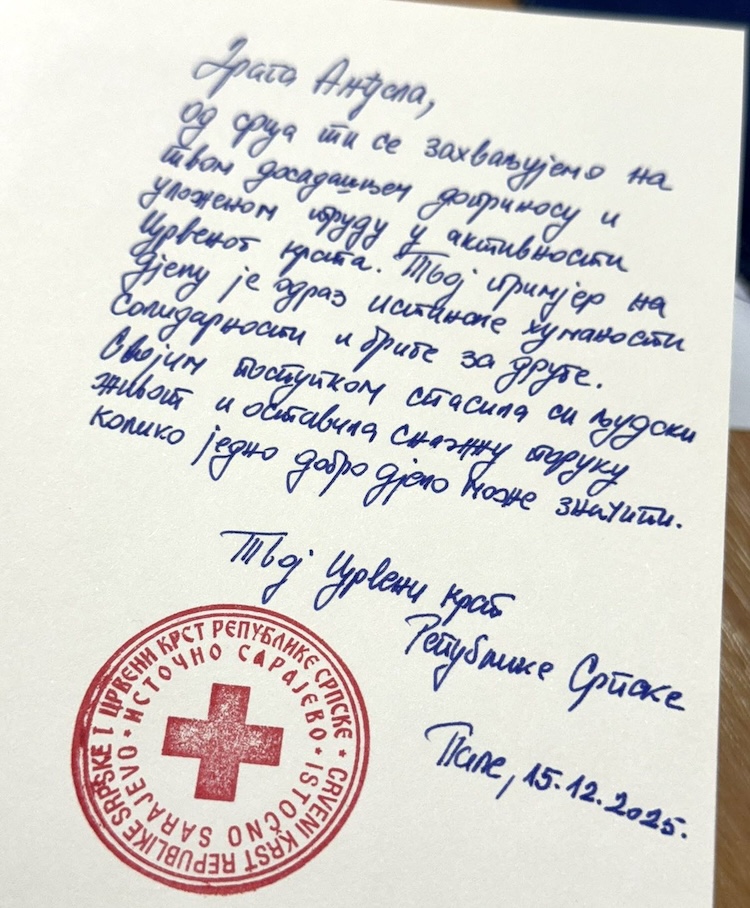 Драга Анђела,
од срца ти се захваљујемо на
твом досадашњем доприносу и
уложеном труду у активности
Црвеног крста. Твој примјер на
дјелу је одраз истинске хуманости
солидарности и бриге за друге.
Својим поступком спасила си људски
живот и оставила снажну поруку
колико једно добро дјело може значити.
Твој Црвени крст
Републике Српске
Пале, 15.12.2025.
ЦРВЕНИ КРСТ РЕПУБЛИКЕ СРПСКЕ * CRVENI KRST REPUBLIKE SRPSKE
ИСТОЧНО САРАЈЕВО * ISTOČNO SARAJEVO